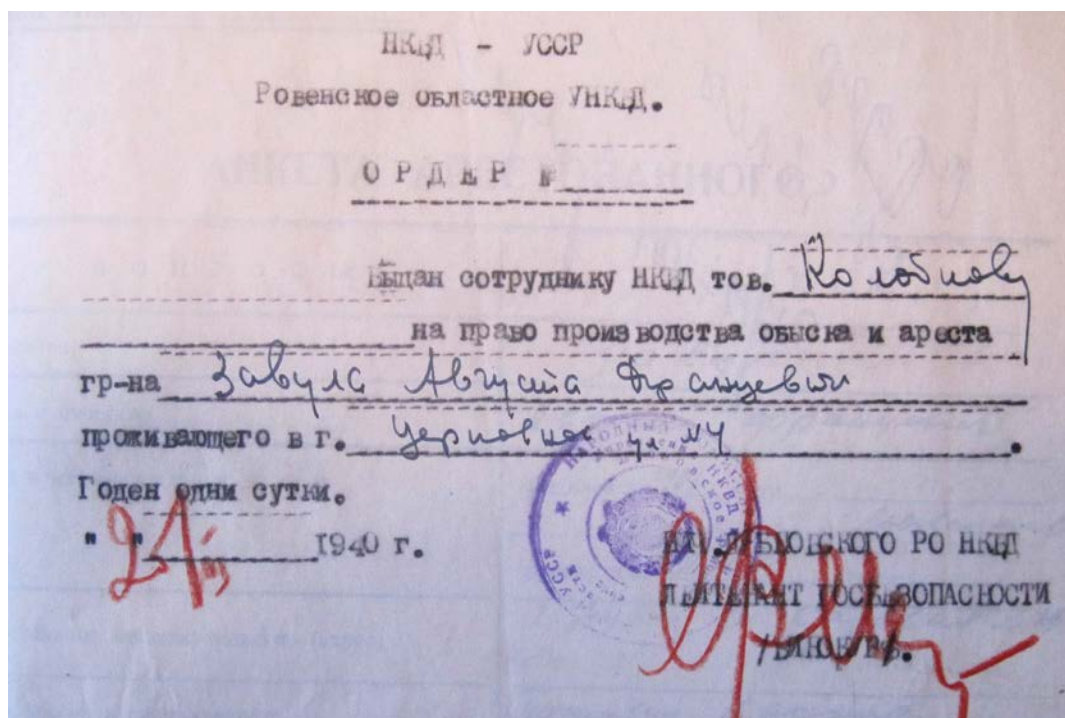 НКВД - УССР
Ровенское областное УНКВД.
ОРДЕР №
Выдан сотруднику НКВД тов.
на право производства обыска и ареста
гр-на Завула Августа Францевич
проживающего в г. Церковная ул №4.
Годен одни сутки.
" " 1940 г.
РО НКВД
ЛЕЙТЕНАНТ ГОСБЕЗОПАСНОСТИ